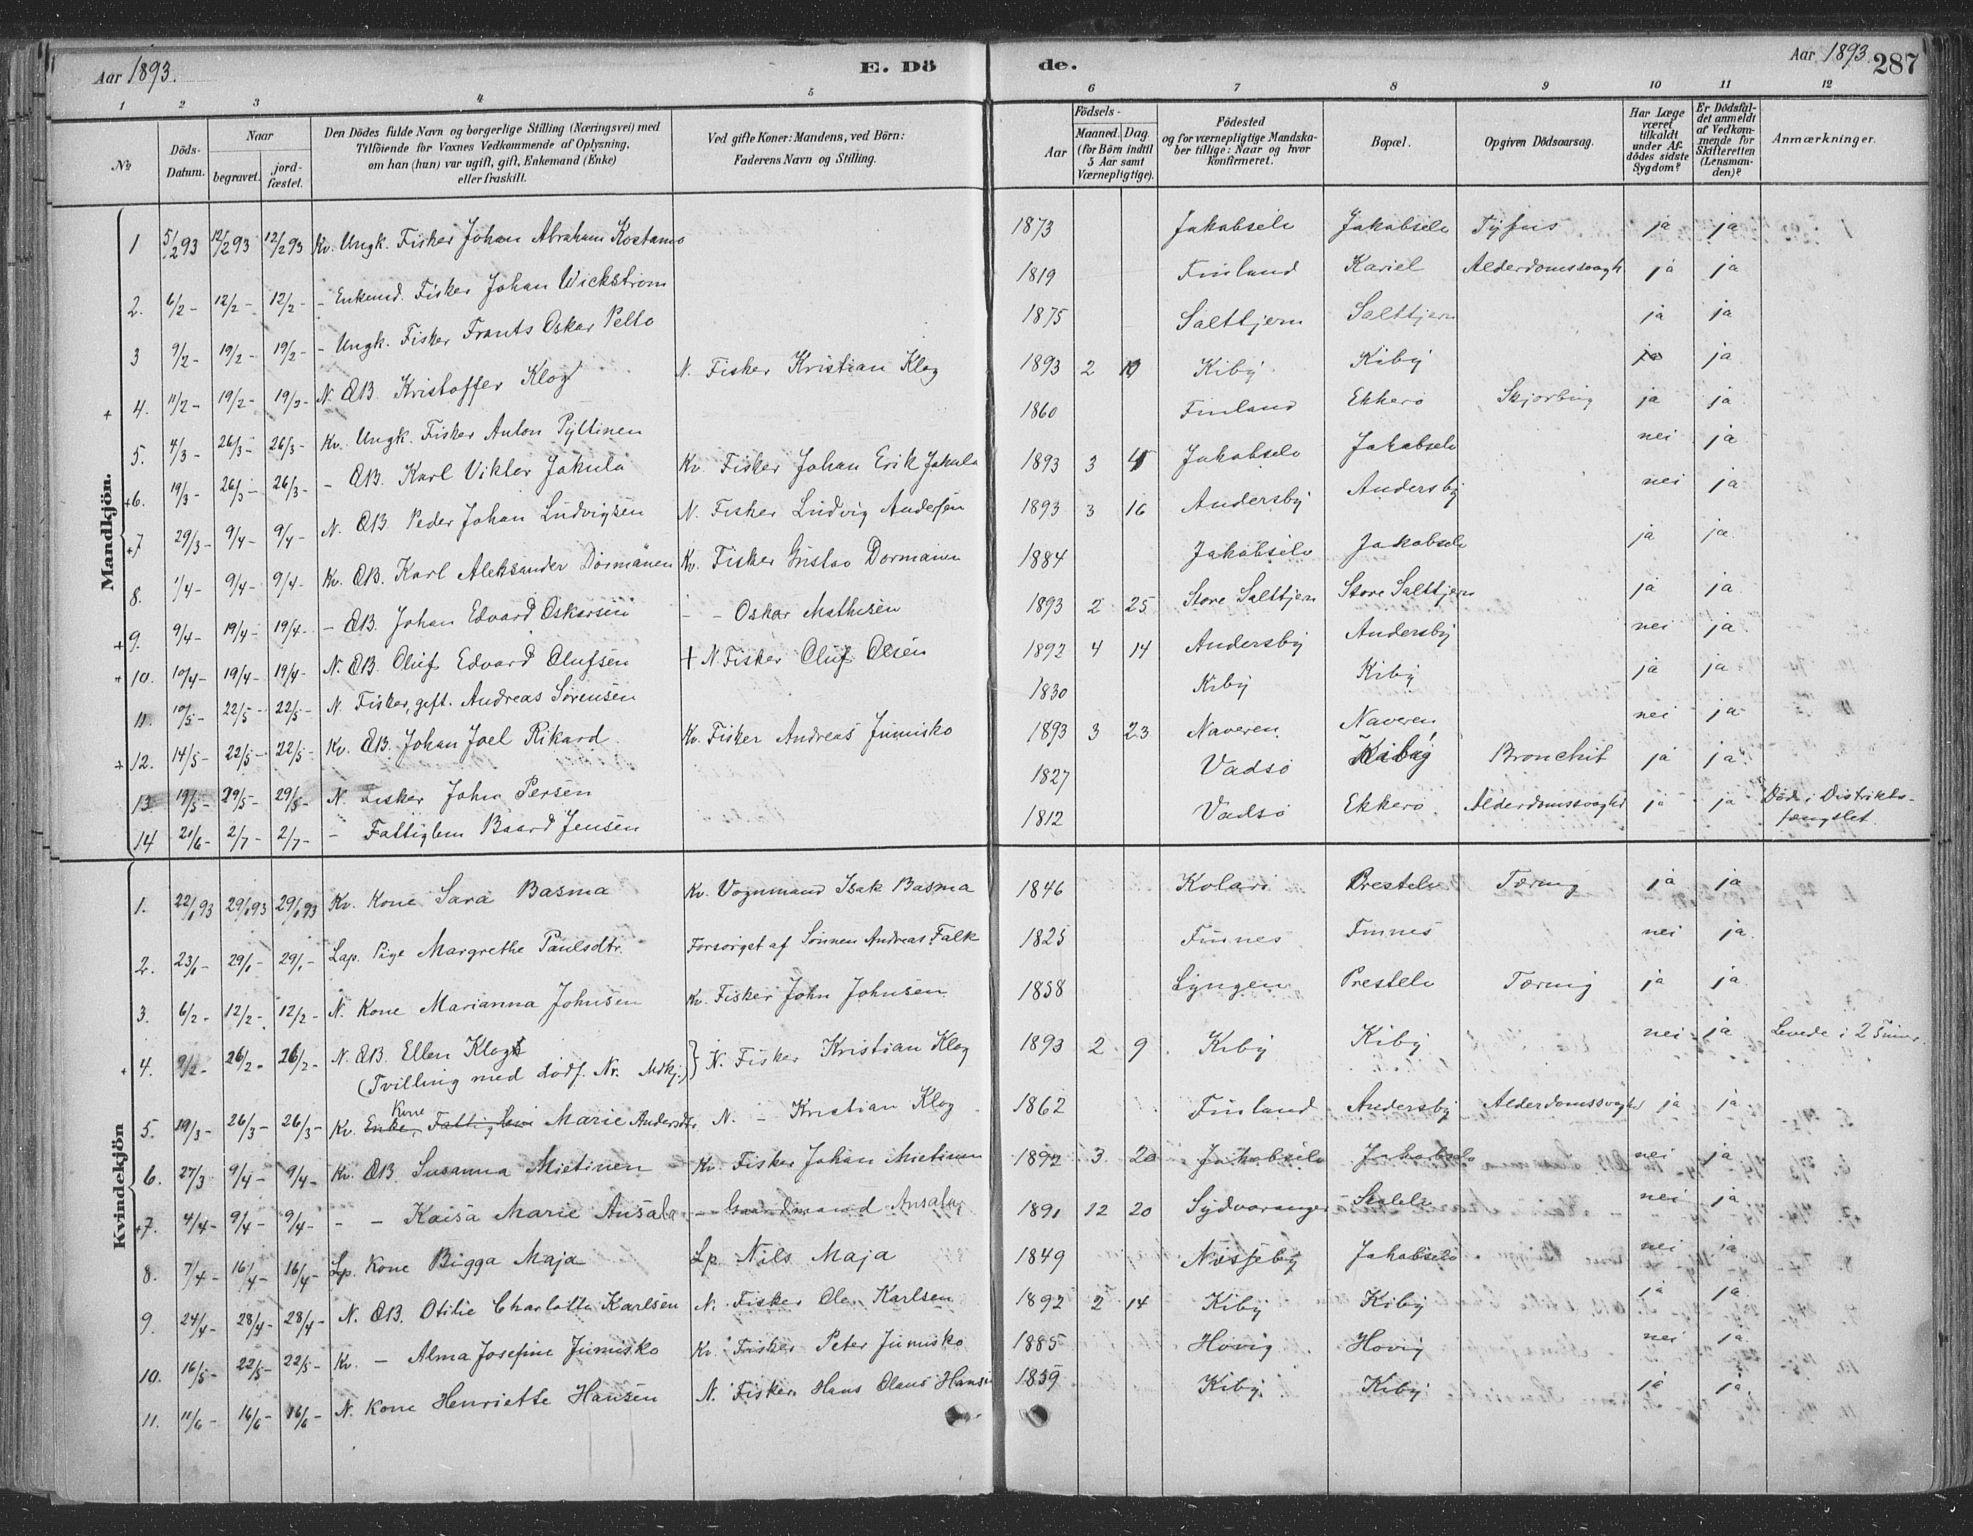 Aar 1893. E. Dö de. Aar 1893. 287
1 2 3 4 5 6 7 8 9 10 11 12
No Döds-Datum. Naar begravet. jord-fæstet. Den Dödes fulde Navn og borgerlige Stilling (Næringsvei) med Tilföiende for Voxnes Vedkommende af Oplysning, om han (hun) var ugift, gift, Enkemand (Enke) eller fraskilt. Ved gifte Koner: Mandens, ved Börn: Faderens Navn og Stilling. Aar Födsels- Maaned. Dag. (for Börn indtil 5 Aar samt Værnepligtige). Födested og for værnepligtige Mandskaber tillige: Naar og hvor Konfirmeret. Bopæl. Opgiven Dödsaarsag. Har Læge været tilkaldt under Afdödes sidste Sygdom? Er Dödsfaldet anmeldt af Vedkommende for Skifteretten (Lensmanden)? Anmærkninger.
Mandkjön.
1 5/2 93 12/2 93 12/2 93 Kv. Ungk. Fisker Johan Abraham Kostamo 1873 Jakobselv Jakobselv Tyfus ja ja
2. 6/2 - 12/2 - 12/2 - - Enkemd. Fisker Johan Wickstrom 1819 Finland Kariel Alderdomssvagh ja ja
3 9/2 - 19/2 - 19/2 - - Ungk. Fisker Frants Oskar Pelto 1875 Salttjern Salttjern ja ja
+ 4. 11/2 - 19/2 - 19/2 - N. ÆB. Kristoffer Klog N. Fisker Kristian Klog 1893 2 10 Kiby Kiby ja ja
5. 4/3 - 26/3 - 26/3 - Kv. Ungk. Fisker Anton Pyltinen 1860 Finland Ekkerö Skjörbug ja ja
+6. 19/3 - 26/3 - 26/3 - - ÆB. Karl Viktor Jakula Kv. Fisker Johan Erik Jakula 1893 3 Jakobselv Jakobselv nei ja
+7 29/3 - 9/4 - 9/4 - N. ÆB. Peder Johan Ludvigsen N. Fisker Ludvig Andersen 1893 3 16 Andersby Andersby nei ja
8. 1/4 - 9/4 - 9/4 - Kv. ÆB. Karl Aleksander Dörmänen Kv. Fisker Gustav Dormänen 1884 Jakobselv Jakobselv ja ja
+ 9. 9/4 - 19/4 - 19/4 - - ÆB. Johan Edvard Oskarsen - - Oskar Mathisen 1893 2 25 Store Salttjern Store Salttjern ja ja
+ 10. 10/4 - 19/4 - 19/4 - N. ÆB. Oluf Edvard Olufsen + N. Fisker Oluf Olsen 1892 4 14 Andersby Andersby nei ja
11. 10/5 - 22/5 - 22/5 - N. Fisker, gift. Andreas Sörensen 1830 Kiby Kiby ja ja
+ 12. 14/5 - 22/5 - 22/5 - Kv. ÆB. Johan Joel Rikard Kv. Fisker Andreas Jumisko 1893 3 23 Naveren Naveren nei ja
13 19/5 - 29/5 - 29/5 - N. Fisker John Persen 1827 Vadsö Kiby Bronchit ja ja
14 21/6 - 2/7 - 2/7 - - Fattiglem Baard Jensen 1812 Vadsö Ekkerö Alderdomssvaghd ja ja Död i Distrikts-
fængslet.
Kvindekjön
1. 22/1 93 29/1 93 29/1 93 Kv. Kone Sara Basma Kv. Vognmand Isak Basma 1846 Kolari Prestelv Tæring ja ja
2. 23/1 - 29/1 - 29/1 - Lap. Pige Margrethe Paulsdtr. Forsörget af Sönnen Andreas Falk 1825 Finnes Finnes nei ja
3. 6/2 - 12/2 - 12/2 - N. Kone Marianna Johnsen Kv. Fisker John Johnsen 1858 Lyngen Prestelv Tæring ja ja
+ 4. 9/2 - 26/2 - 26/2 - N. ÆB. Ellen Klog N. Fisker Kristian Klog 1893 2 9 Kiby Kiby nei ja Levede i 2 Timer.
(Tvilling med dödf. Nr. Mdkj.)
5. 19/3 - 26/3 - 26/3 - Kv. Enke, Fattiglem Kone Marie Andersdtr N. - Kristian Klog 1862 Finland Andersby Alderdomssvaghd ja ja
6. 27/3 9/4 - 9/4 - Kv. ÆB. Susanna Mietinen Kv. Fisker Johan Mietinen 1892 3 20 Jakobselv Jakobselv nei ja
+7. 4/4 - 9/4 - 9/4 - - - Kaisa Marie Ansala - Gaardmand Ansala 1891 12 20 Sydvaranger nei ja
8. 7/4 - 16/4 - 16/4 - Lp. Kone Bigga Maja Lp. Nils Maja 1849 Næsseby Jakobselv nei ja
9. 24/4 - 28/4 - 28/4 - N. ÆB. Otilie Charlotta Karlsen N. Fisker Ole Karlsen 1892 2 14 Kiby Kiby ja ja
10. 16/5 - 22/5 - 22/5 - Kv. - Alma Josefine Jumisko Kv. Fisker Peter Jumisko 1885 Hovig Hovig nei ja
11. 11/6 - 16/6 - 16/6 - N. Kone Henriette Hansen N. Fisker Hans Olaus Hansen 1839 Kiby Kiby ja ja